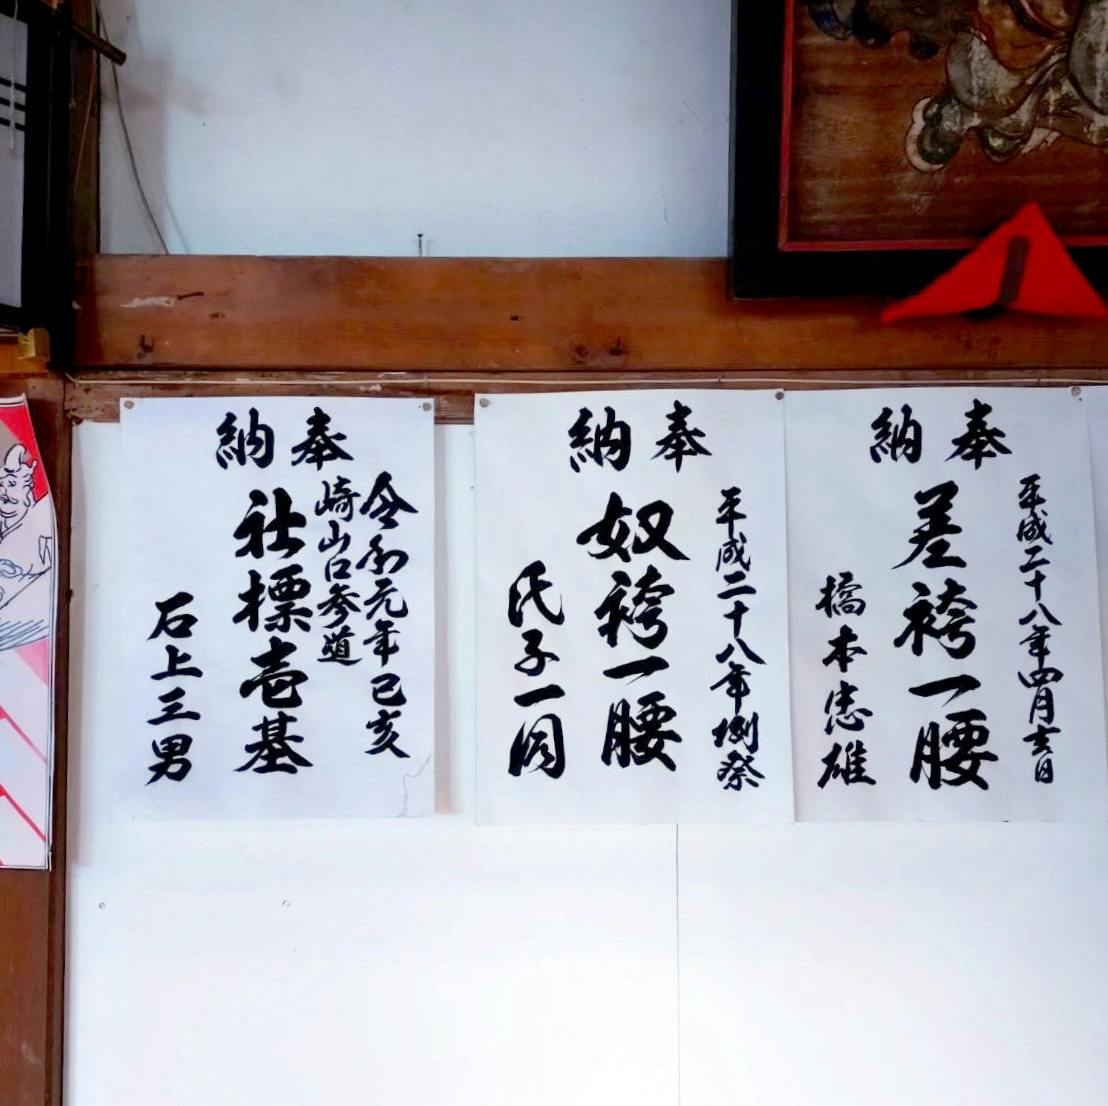 奉納
平成二十八年四月吉日
差袴一腰
橋本忠雄
奉納
平成二十八年例祭
奴袴一腰
氏子一同
奉納
令和元年己亥
崎山口参道
社標壱基
石上三男